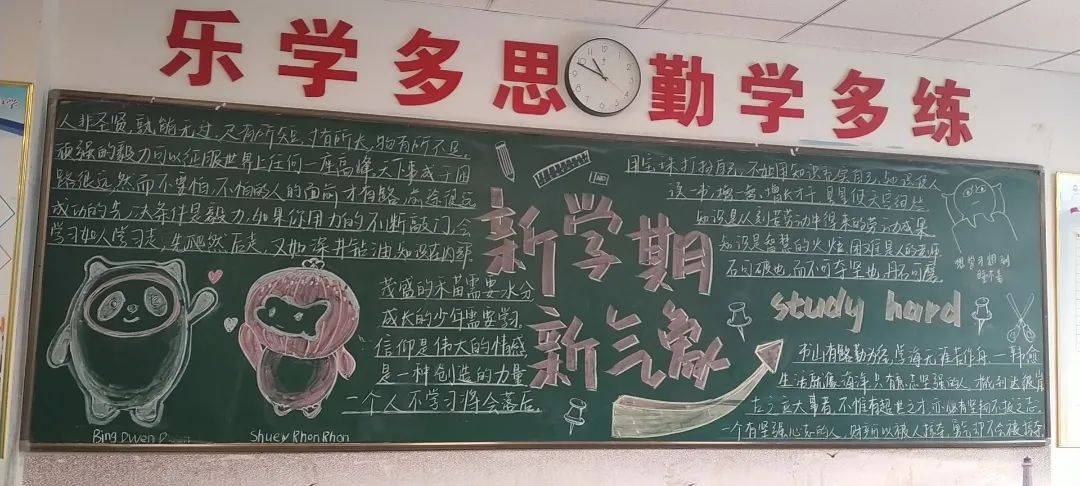 乐学多思 勤学多练
人非圣贤,孰能无过,尺有所短,寸有所长,物有所不足,
顽强的毅力可以征服世界上任何一座高峰,天下事成于困
路很远,然而不要怕,不怕的人的面前才有路
成功的先决条件是毅力,如果你用力的不断敲门,会
学习如人学习走,先爬然后走,又如深井
茂盛的禾苗需要水分
成长的少年需要学习
信仰是伟大的情感
是一种创造的力量
一个人不学习将会落后.
Bing Dwen D
Shuey Rhon Rhon
新学期
新气象
用宝珠打扮自己,不如用知识充实自己,
读一书,增一智
知识是从刻苦劳动中得来的
知识是智慧的火炬,困难是人的老师
石可破也,而不可夺坚也,丹可磨
想学习想到
睡不着
study hard
书山有路勤为径,学海无涯苦作舟——韩愈
生活就像海洋,只有意志坚强的人,才能到达彼岸
古之立大事者,不惟有超世之才,亦必有坚韧不拔之志.
一个有坚强心志的人,财产可以被人掠夺,勇气却不会被掠夺